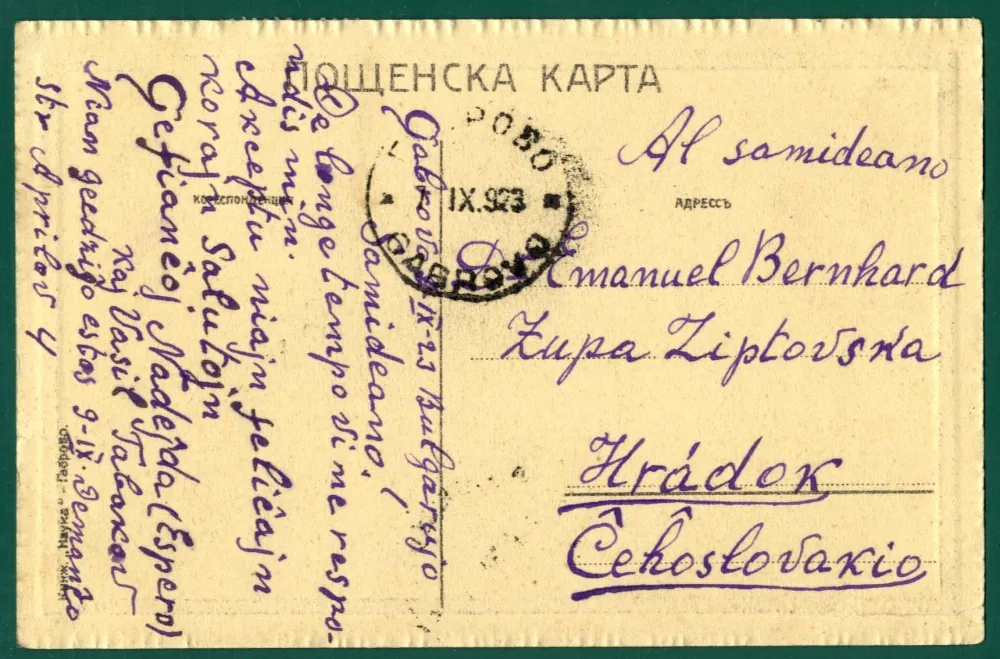 ПОЩЕНСКА КАРТА
КОРЕСПОНДЕНЦИЯ
АДРЕССЪ
РОВО
IX.923
GABROVO
Al samideano
D-ro Emanuel Bernhard
Zupa Liptovska
Hrádok
Ĉeĥoslovakio
Gabrovo IX-23 Bulgarujo
Samideano,
De longe tempo vi ne respo-
ndis min.
Akceptu niajn feliĉajn
korajn Salutojn
Gefianĉoj Nadejda (Espero)
Kaj Vasil Tabakov
Niam geedziĝo estos 9-IX. Demanĉo
str Aprilov 4
Книж. "Наука" - Габрово.